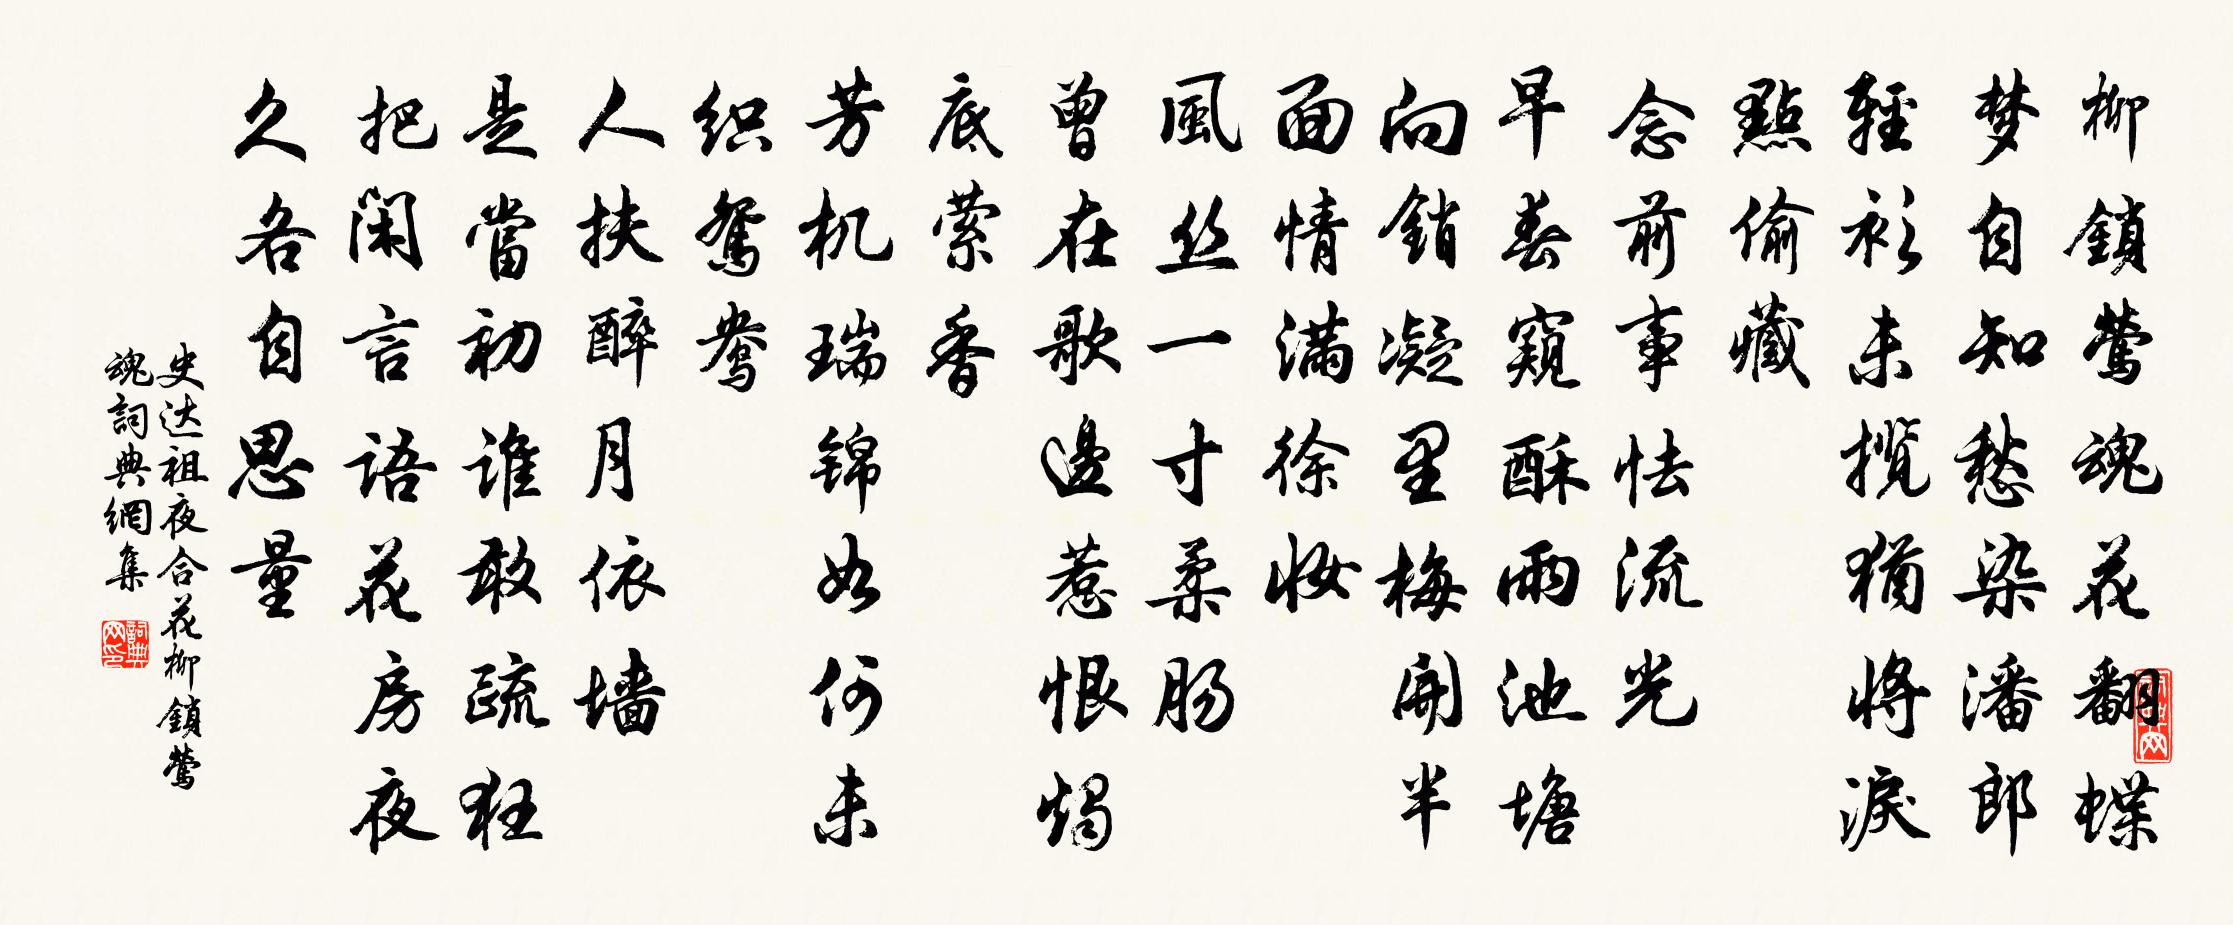 柳鎖鶯魂花翻蝶
梦自知愁染潘郎
輕衫未攬猶將淚
點偷藏
念前事怯流光
早春窺酥雨池塘
向銷凝里梅開半
面情滿徐妝
風丝一寸柔肠
曾在歌邊惹恨燭
底萦香
芳机瑞锦如何未
织鸳鸯
人扶醉月依墙
是當初谁敢疏狂
把闲言语花房夜
久各自思量
史达祖夜合花柳鎖鶯
魂詞典網集
詞典网